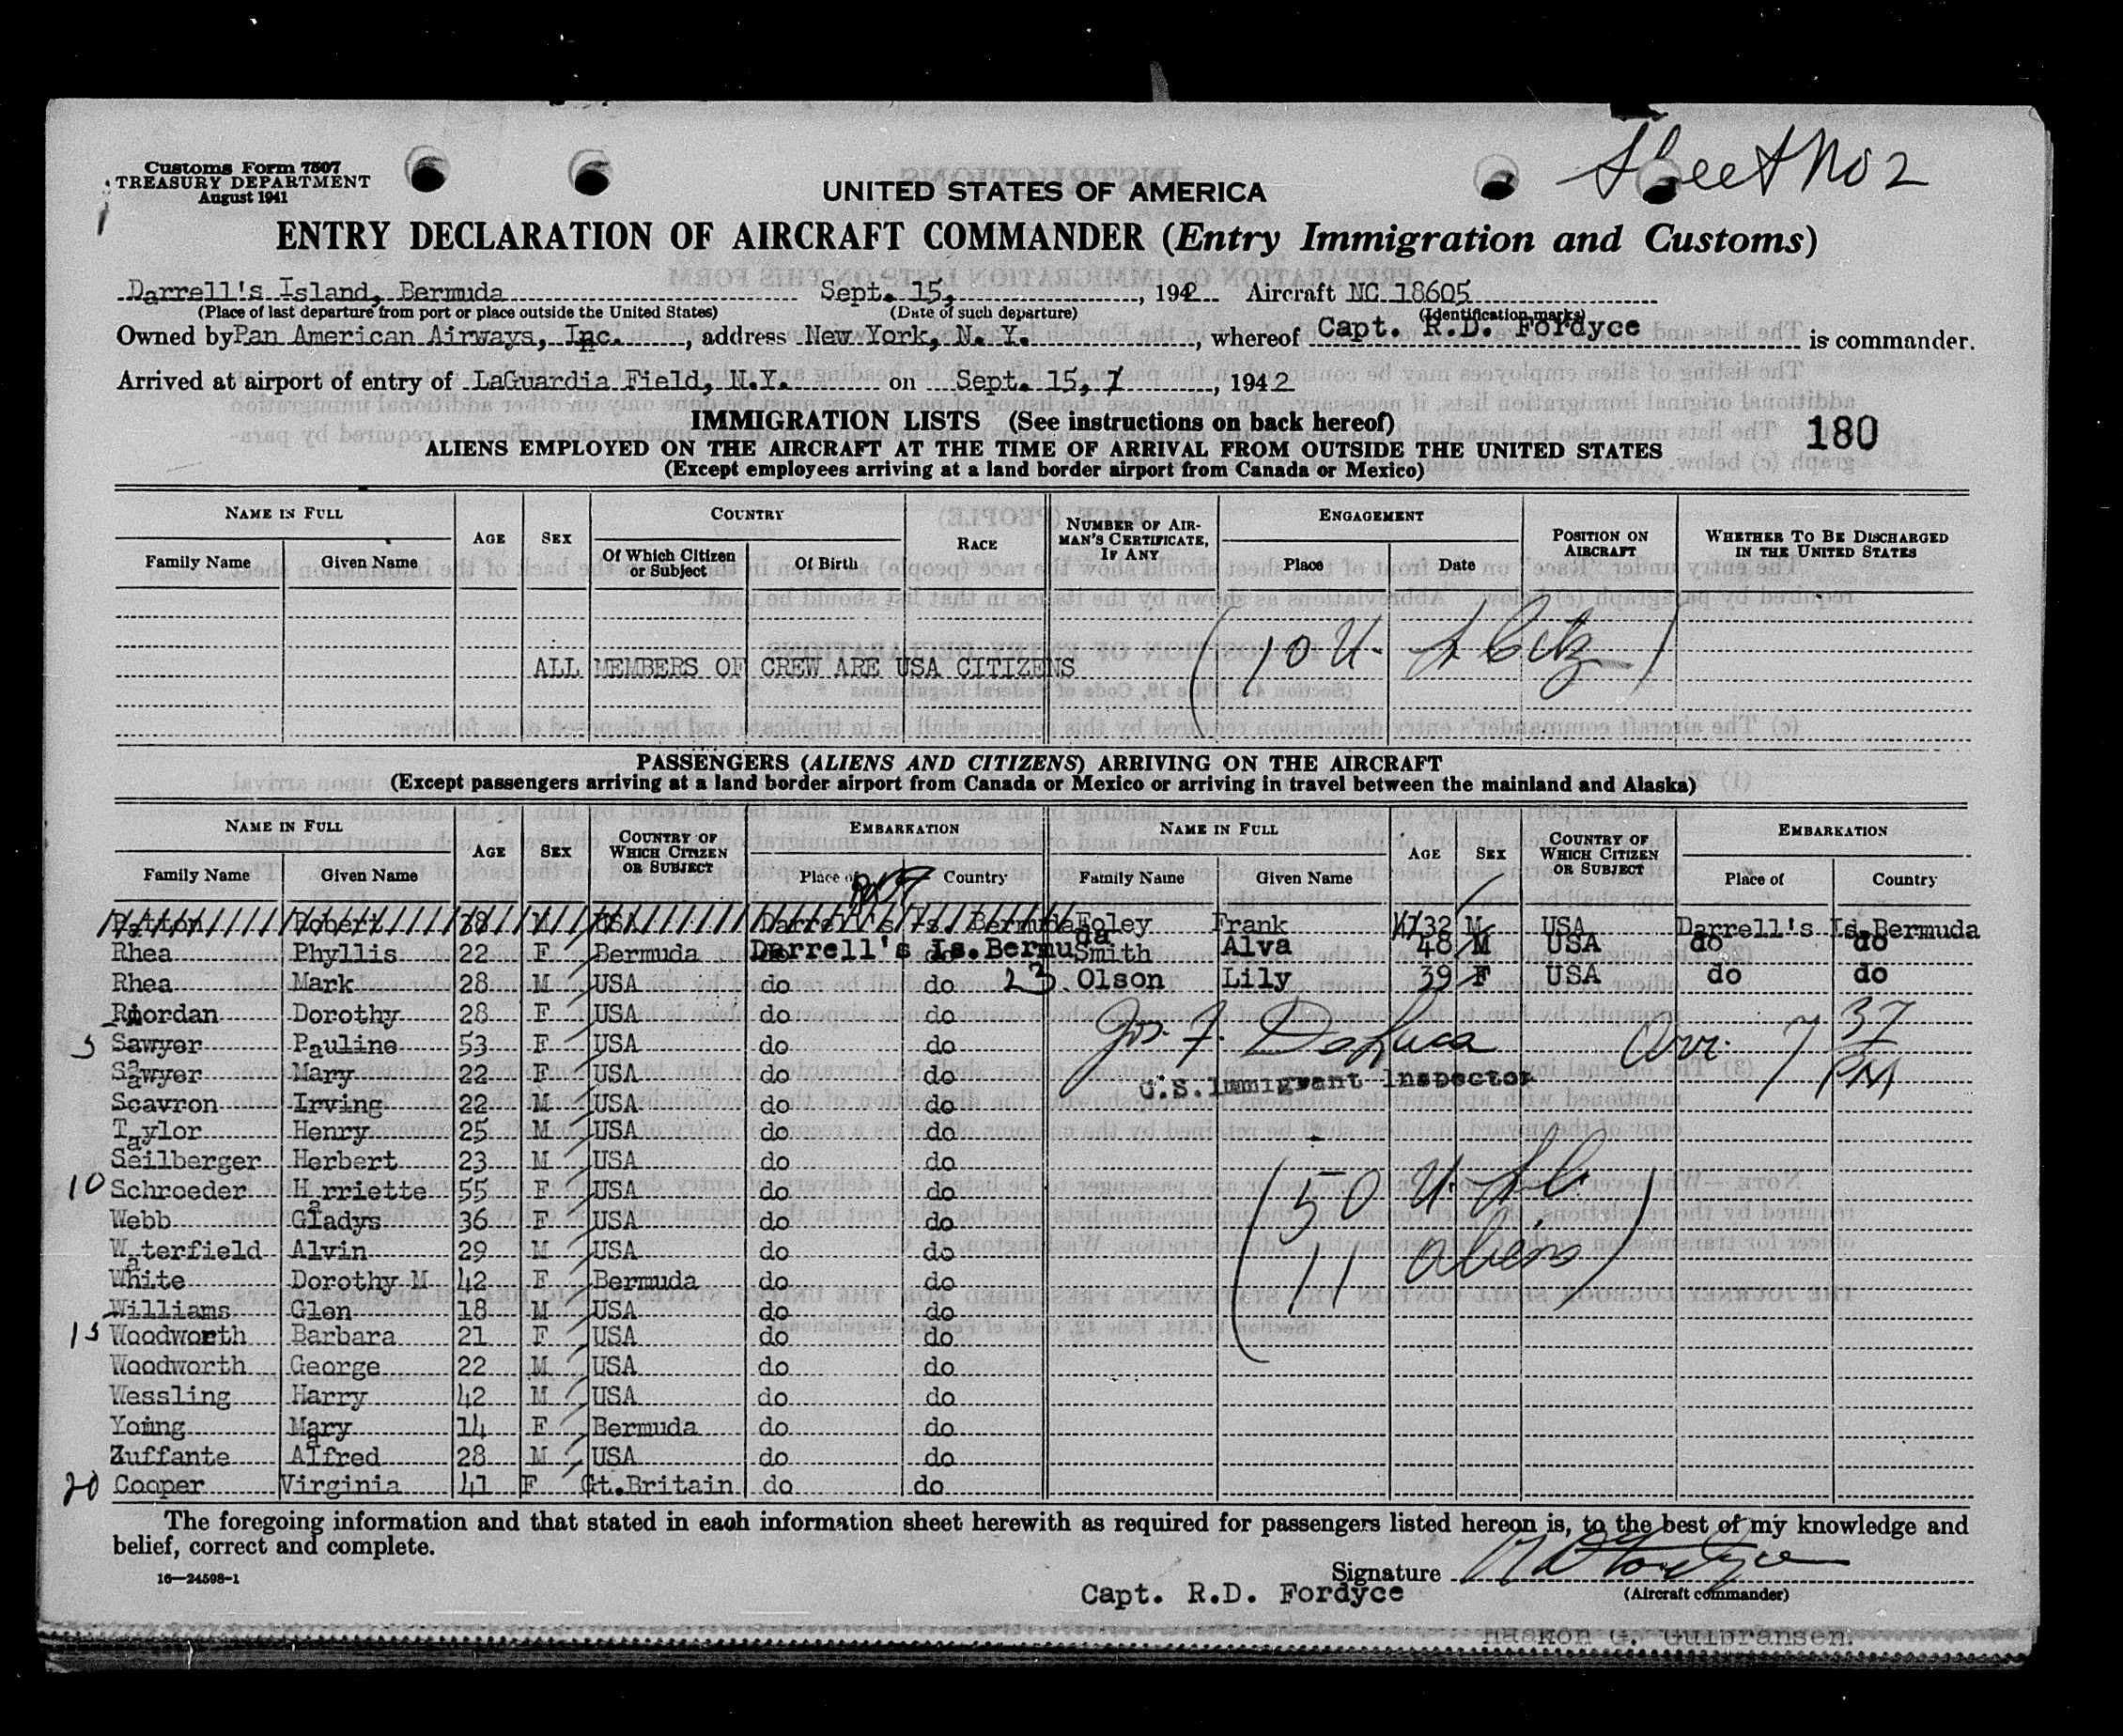 Sheet No 2
Customs Form 7507
TREASURY DEPARTMENT
August 1941
UNITED STATES OF AMERICA
ENTRY DECLARATION OF AIRCRAFT COMMANDER (Entry Immigration and Customs)
Darrell's Island, Bermuda Sept. 15, , 1942 Aircraft NC 18605
(Place of last departure from port or place outside the United States) (Date of such departure) (Identification marks)
Owned by Pan American Airways, Inc. , address New York, N. Y. , whereof Capt. R.D. Fordyce is commander.
Arrived at airport of entry of LaGuardia Field, N.Y. on Sept. 15, , 1942
IMMIGRATION LISTS (See instructions on back hereof)
180
ALIENS EMPLOYED ON THE AIRCRAFT AT THE TIME OF ARRIVAL FROM OUTSIDE THE UNITED STATES
(Except employees arriving at a land border airport from Canada or Mexico)
NAME IN FULL AGE SEX COUNTRY RACE NUMBER OF AIRMAN'S CERTIFICATE, IF ANY ENGAGEMENT POSITION ON AIRCRAFT WHETHER TO BE DISCHARGED IN THE UNITED STATES
Family Name Given Name Of Which Citizen or Subject Of Birth Place Date
ALL MEMBERS OF CREW ARE USA CITIZENS
(10 U.
PASSENGERS (ALIENS AND CITIZENS) ARRIVING ON THE AIRCRAFT
(Except passengers arriving at a land border airport from Canada or Mexico or arriving in travel between the mainland and Alaska)
NAME IN FULL AGE SEX COUNTRY OF WHICH CITIZEN OR SUBJECT EMBARKATION NAME IN FULL AGE SEX COUNTRY OF WHICH CITIZEN OR SUBJECT EMBARKATION
Family Name Given Name Place of Country Family Name Given Name Place of Country
Robert 38 M USA Darrell's Is. Bermuda Foley Frank 32 M USA Darrell's Is. Bermuda
Rhea Phyllis 22 F Bermuda Darrell's Is. Bermuda Smith Alva 48 M USA do do
Rhea Mark 28 M USA do do 23 Olson Lily 39 F USA do do
Riordan Dorothy 28 F USA do do
5 Sawyer Pauline 53 F USA do do Jos. F. DeLuca Arr. 7 37 PM
Sawyer Mary 22 F USA do do U.S. Immigrant Inspector
Scavron Irving 22 M USA do do
Taylor Henry 25 M USA do do
Seilberger Herbert 23 M USA do do
10 Schroeder Harriette 55 F USA do do (50 U.S.C.
Webb Gladys 36 F USA do do
Waterfield Alvin 29 M USA do do 11 aliens)
White Dorothy M 42 F Bermuda do do
Williams Glen 18 M USA do do
15 Woodworth Barbara 21 F USA do do
Woodworth George 22 M USA do do
Wessling Harry 42 M USA do do
Young Mary 14 F Bermuda do do
Zuffante Alfred 28 M USA do do
20 Cooper Virginia 41 F Gt.Britain do do
The foregoing information and that stated in each information sheet herewith as required for passengers listed hereon is, to the best of my knowledge and
belief, correct and complete.
16—24598-1
Signature R D Fordyce
Capt. R.D. Fordyce
(Aircraft commander)
Haakon G. Gulbransen.